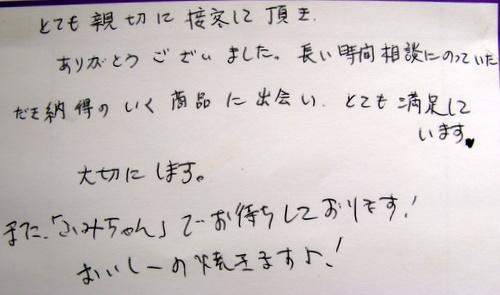 とても 親切に 接客して 頂き
ありがとう ございました。長い時間相談にのっていた
だき納得の いく 商品 に 出会い、とても 満足して
います♥
大切に します。
また、「ふみちゃん」で お待ちしております!
おいしーの焼きますよ!